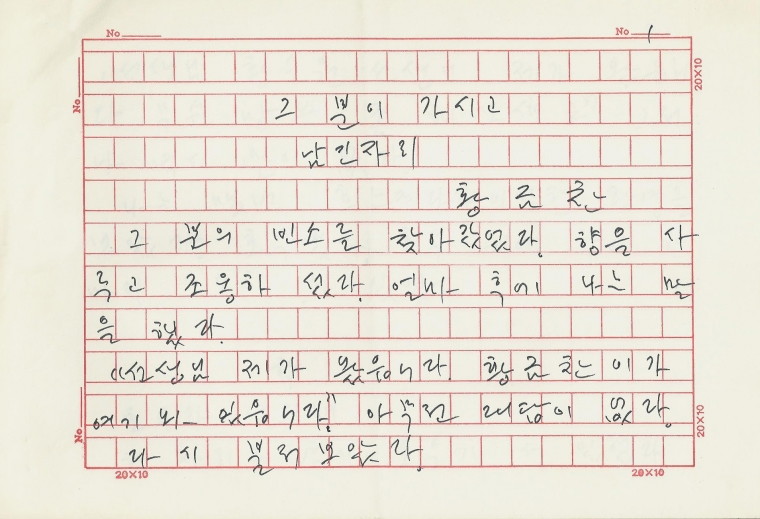 No
No 1
No
20×10
그 분이 가시고
남긴자리
황 금 찬
그 분의 빈소를 찾아 갔었다. 향을 사
루고 조용히 섰다. 얼마 후에 나는 말
을 했다.
"선생님 제가 왔읍니다. 황금찬이가
여기 와 있읍니다." 아무런 대답이 없다.
다시 불러 보았다.
No
20×10
20×10
20×10